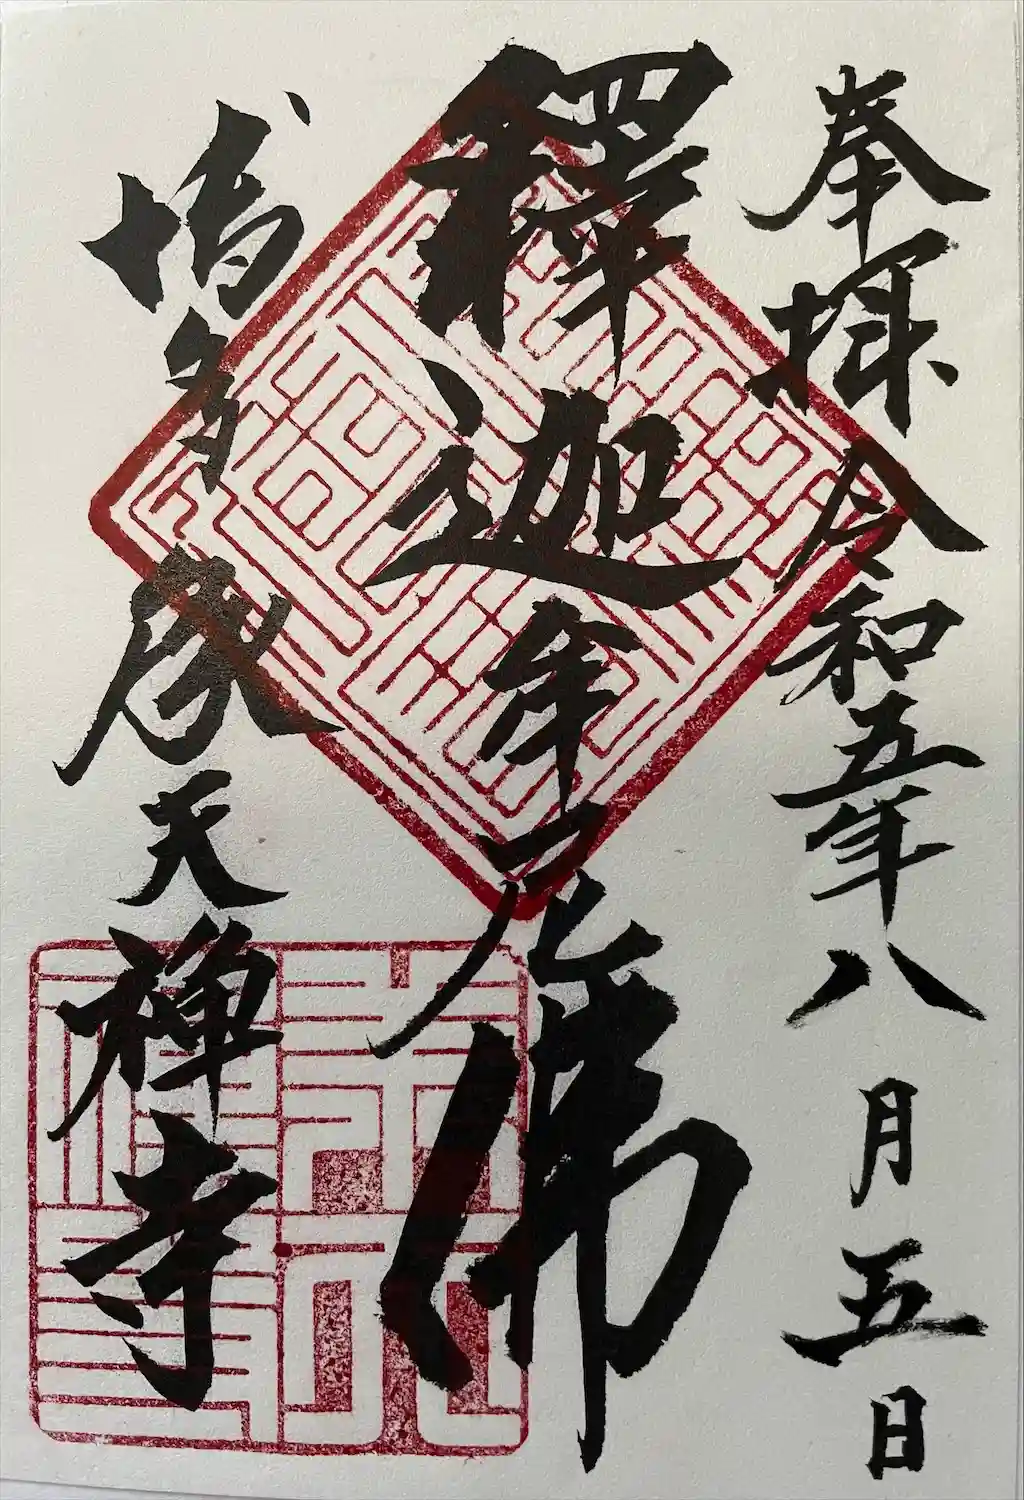 奉拝令和五年八月五日
釋迦牟尼佛
博多承天禅寺